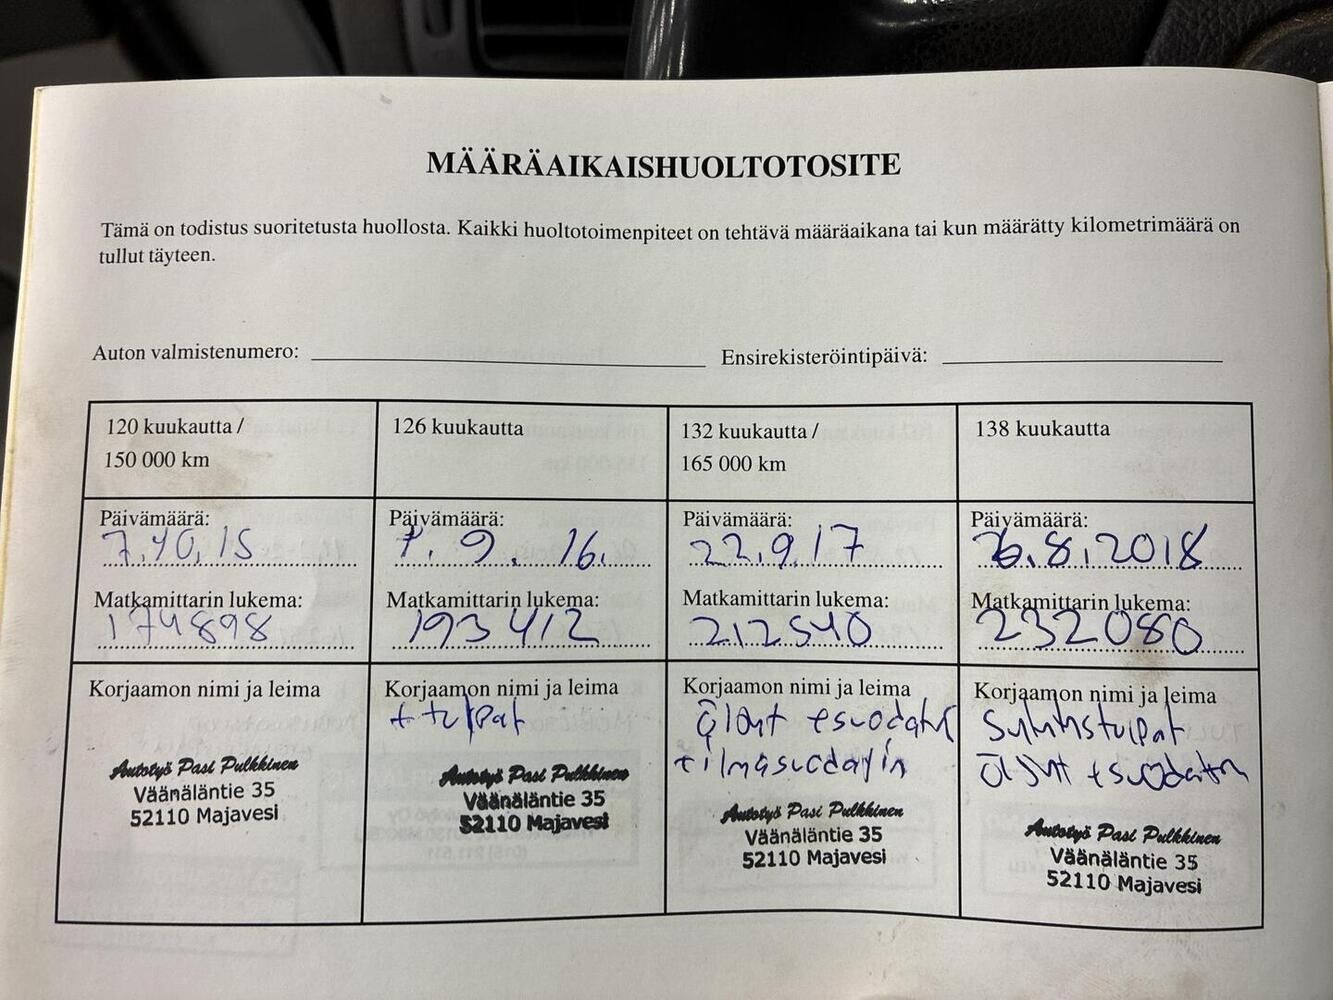 MÄÄRÄAIKAISHUOLTOTOSITE
Tämä on todistus suoritetusta huollosta. Kaikki huoltotoimenpiteet on tehtävä määräaikana tai kun määrätty kilometrimäärä on
tullut täyteen.
Auton valmistenumero:
Ensirekisteröintipäivä:
120 kuukautta /
150 000 km
Päivämäärä:
7.10.15
Matkamittarin lukema:
174898
Korjaamon nimi ja leima
Autotyö Pasi Pulkkinen
Väänäläntie 35
52110 Majavesi
126 kuukautta
Päivämäärä:
7.9.16.
Matkamittarin lukema:
193412
Korjaamon nimi ja leima
+ tulpat
Autotyö Pasi Pulkkinen
Väänäläntie 35
52110 Majavesi
132 kuukautta /
165 000 km
Päivämäärä:
22.9.17
Matkamittarin lukema:
212540
Korjaamon nimi ja leima
+ilmasuodatin
Autotyö Pasi Pulkkinen
Väänäläntie 35
52110 Majavesi
138 kuukautta
Päivämäärä:
.8.2018
Matkamittarin lukema:
232080
Korjaamon nimi ja leima
Autotyö Pasi Pulkkinen
Väänäläntie 35
52110 Majavesi